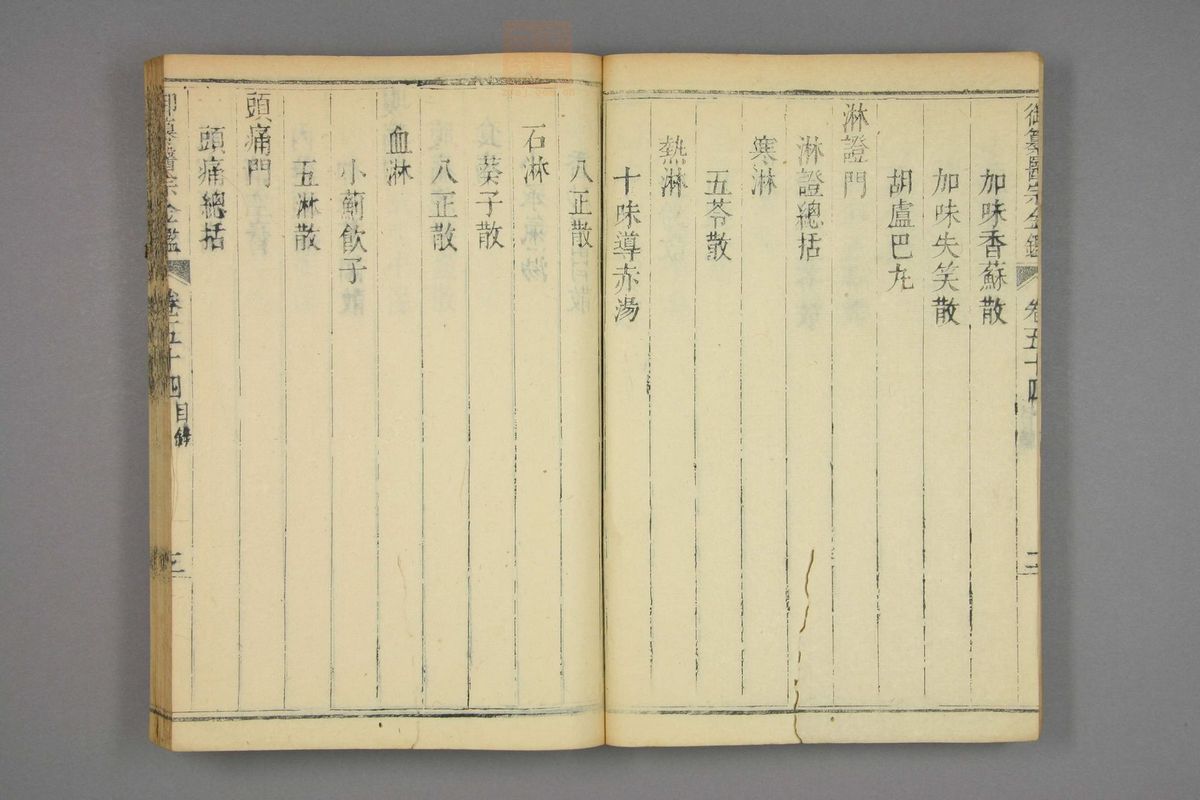 御纂醫宗金鑑 卷五十四 二
加味香蘇散
加味失笑散
胡盧巴丸
淋證門
淋證總括
寒淋
五苓散
熱淋
十味導赤湯
八正散
石淋
葵子散
八正散
血淋
小薊飲子
五淋散
頭痛門
頭痛總括
御纂醫宗金鑑 卷五十四 目錄 三